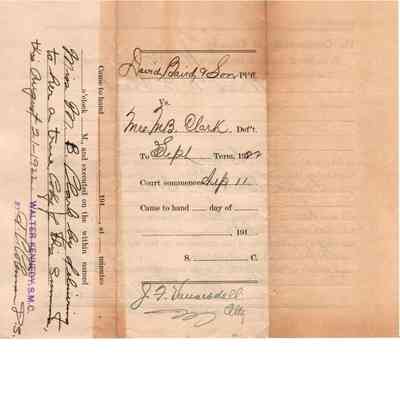 David Baird & Son, Pl'ff.
Vs.
Mrs. M.B. Clark Def't.
To Sept Term, 1922
Court commences Sep 11
Came to hand day of
, 191
S. C.
J. F. Vanarsdell
Atty
Came to hand 191 , at minutes
o'clock M. and executed on the within named
Miss M B Clark by delivering
to her a true copy of this Summons,
this August 21-1922
WALTER KENNEDY, S.M.C.
BY D.S.